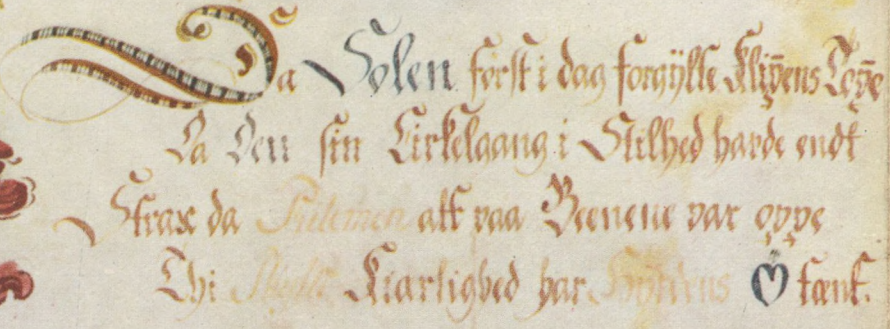 Da Solen først i dag forgÿlte Klip̄ens Top̄e
Da Den sin Cirkelgang i Stilhed hafde endt
Strax da Filemen alt paa Beenene var oppe
Thi Kiærlighed har tænt.